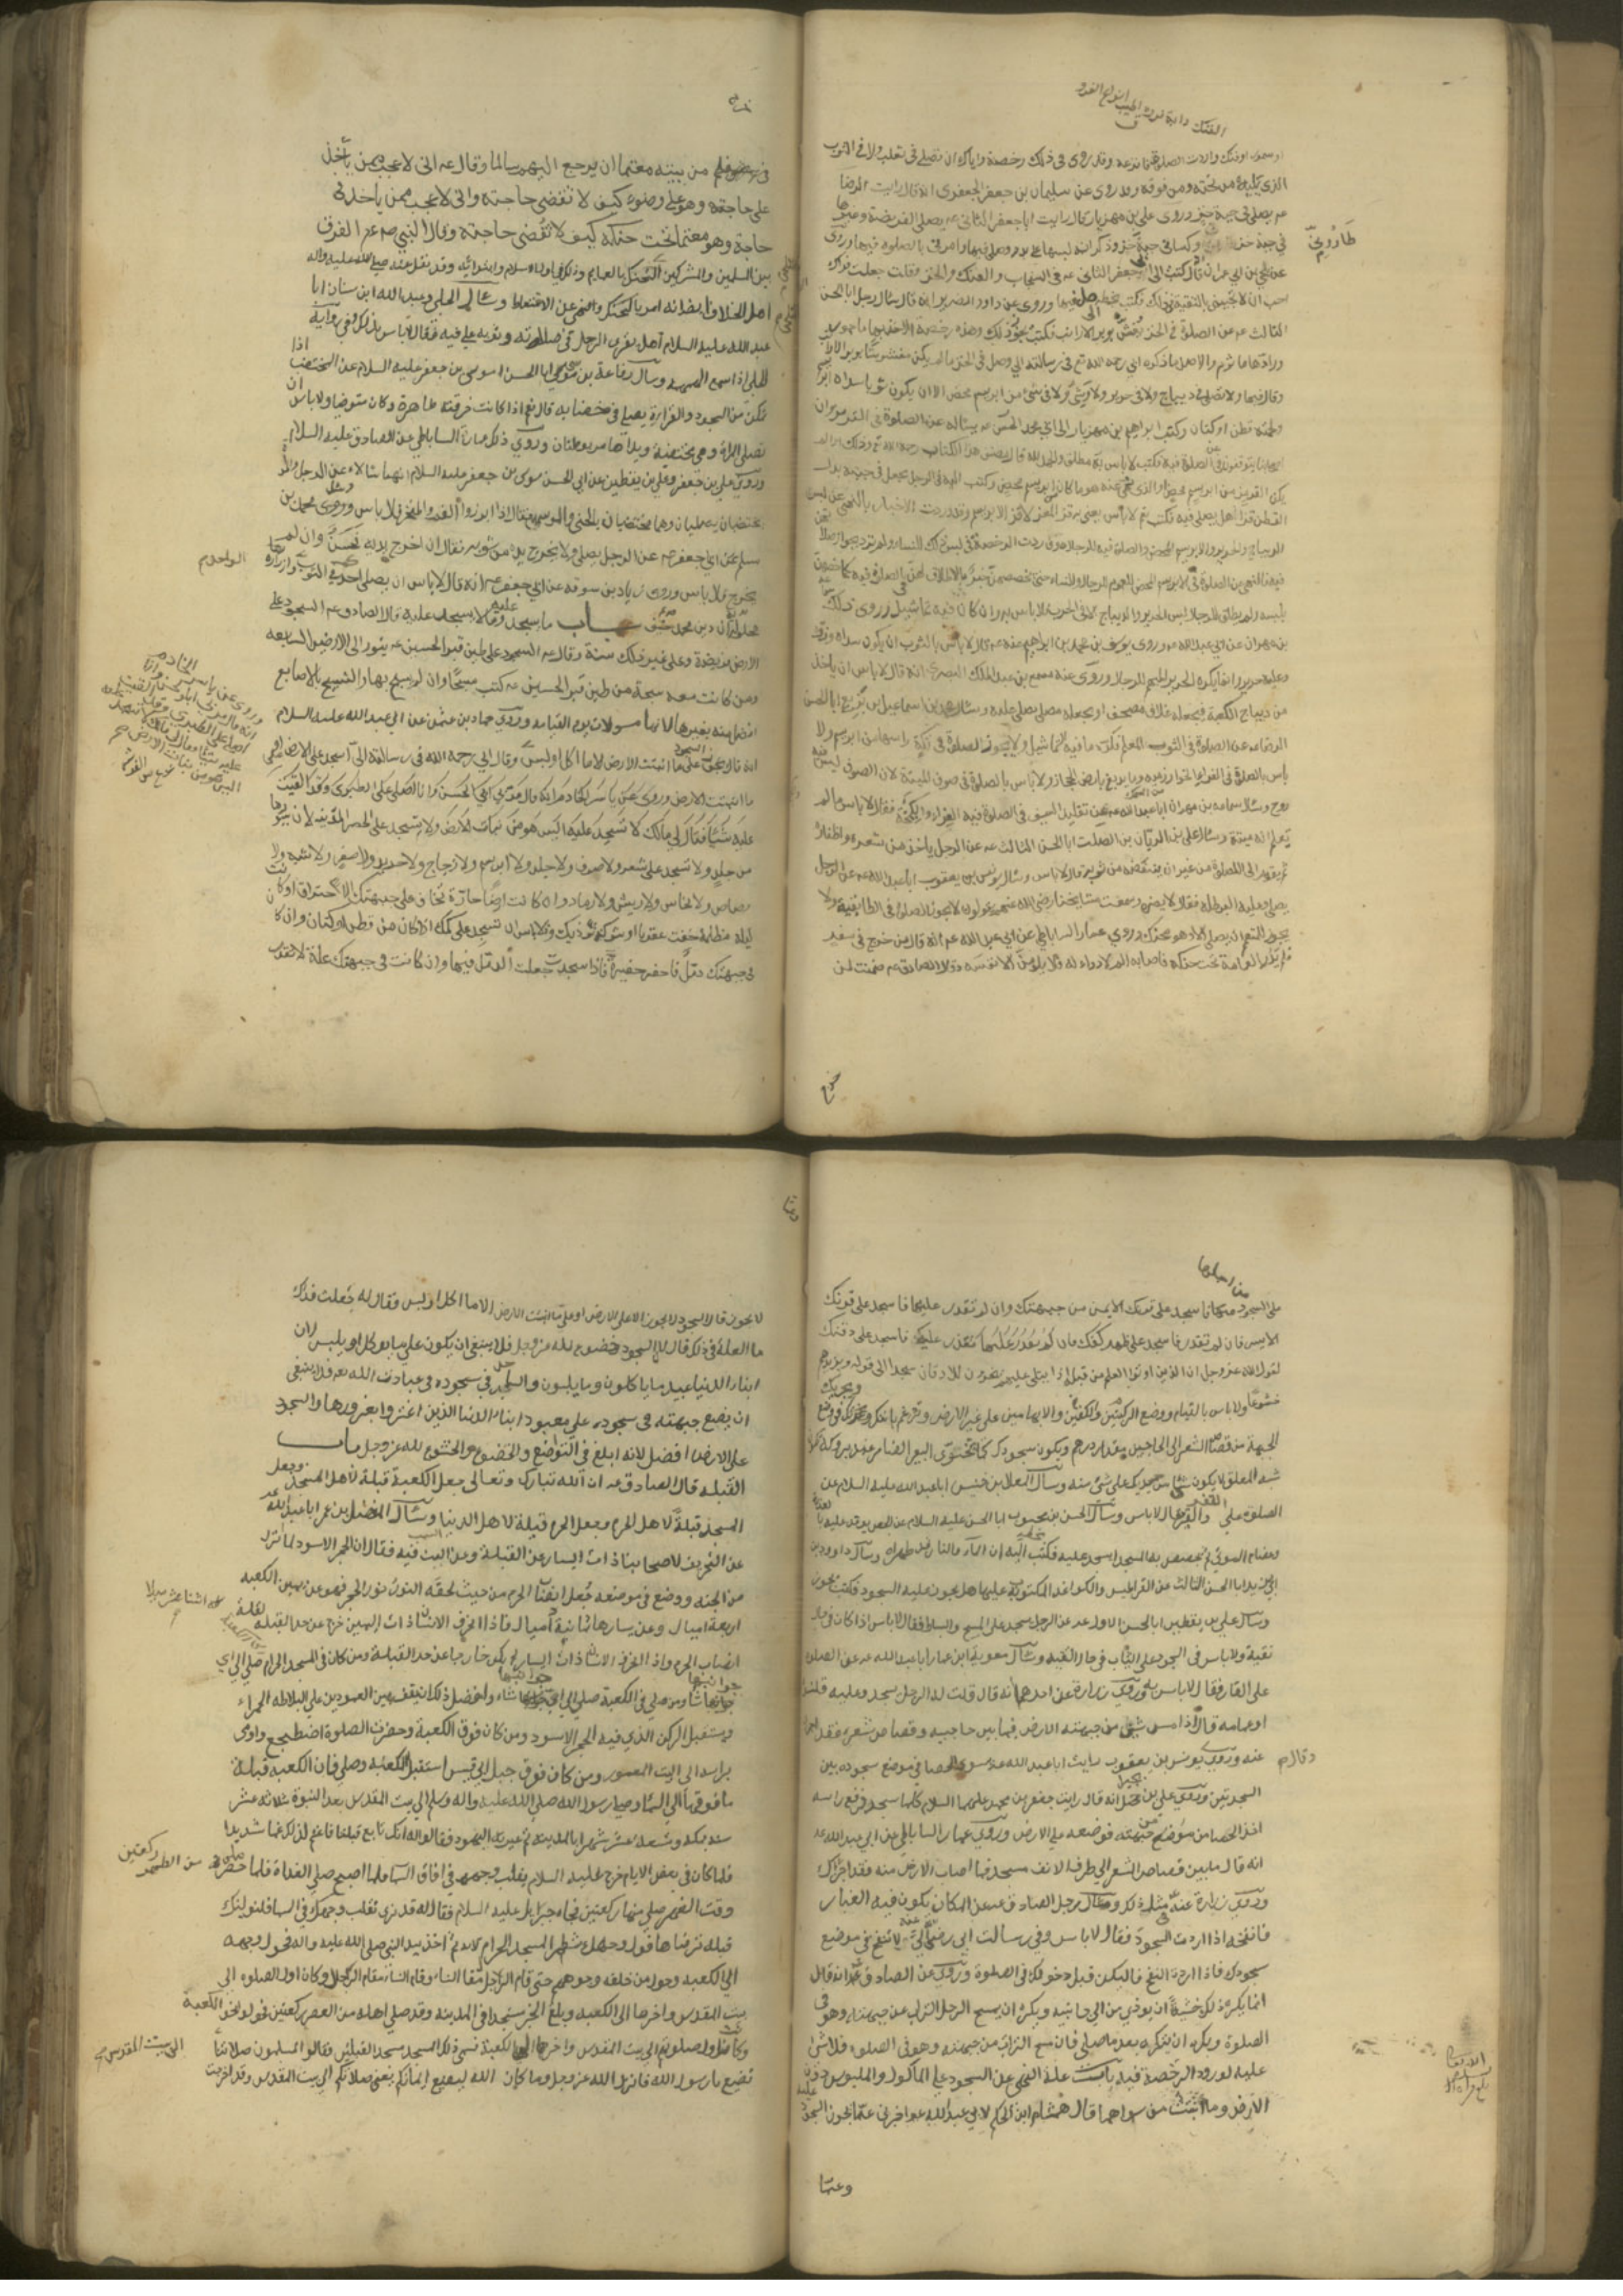 الفنك دابة فروتها اطيب انواع الفراء
او سمور او فنك واردت الصلوة فانزعه وقد روى فى ذلك رخصة واياك ان تصلى فى ثعلب ولا فى الثوب
الذى يليه من تحته ومن فوقه وروى عن سليمان بن جعفر الجعفرى انه قال رايت الرضا
عم يصلى فى جبة خز وروى على بن مهزيار قال رايت ابا جعفر الثانى عم يصلى الفريضة وغيرها
فى جبة خز طاروى وكسانى جبة خز وذكر انه لبسها على بدنه وصلى فيها وامرنى بالصلوة فيها وروى
طاروىّ
عن يحيى بن ابى عمران انه قال كتبت الى ابى جعفر الثانى عم فى السنجاب والفنك والخز وقلت جعلت فداك
احب ان لا تجيبنى بالتقية فى ذلك فكتب بخطه الى صل فيها وروى عن داود الصرمى انه قال سأل رجل ابا الحسن
الثالث عم عن الصلوة فى الخز يغش بوبر الارانب فكتب يجوز ذلك وهذه رخصة الاخذ بها ماجور
ورادها ماثوم والاصل ما ذكره ابى رحمه الله فى رسالته الى وصل فى الخز ما لم يكن مغشوشا بوبر الارانب
وقال فيها ولا تصل فى ديباج ولا فى حرير ولا وشى ولا فى شئ من ابريسم محض الا ان يكون ثوبا سداه ابريسم
ولحمته قطن او كتان وكتب ابراهيم بن مهزيار الى ابى محمد الحسن عم يساله عن الصلوة فى القرمز وان
اصحابنا يتوقفون عن الصلوة فيه فكتب لا باس به مطلق والحمد لله قال مصنف هذا الكتاب رحمه الله وذلك اذا لم
يكن القرمز من ابريسم محض والذى نهى عنه هو ما كان من ابريسم محض وكتب اليه فى الرجل يجعل فى جبته بدل
القطن قزا هل يصلى فيه فكتب نعم لا باس به يعنى به قز المعز لا قز الابريسم وقد وردت الاخبار بالنهى عن لبس
الديباج والحرير والابريسم المحض والصلوة فيه للرجال ووردت الرخصة فى لبس ذلك للنساء ولم ترد بجواز صلوتهن
فيه فالنهى عن الصلوة فى الابريسم المحض على العموم للرجال والنساء حتى يخصهن خبر بالاطلاق لهن فى الصلوة فيه كما خصهن
بلبسه ولم يطلق للرجال لبس الحرير والديباج الا فى الحرب ولا باس به وان كان فيه تماثيل وروى ذلك سماعة
بن مهران عن ابى عبد الله عم وروى يوسف بن محمد بن ابراهيم عنه عم قال لا باس بالثوب ان يكون سداه وزره
وعلمه حريرا وانما يكره الحرير المبهم للرجال وروى عنه مسمع بن عبد الملك البصرى انه قال لا باس ان ياخذ
من ديباج الكعبة فيجعله غلاف مصحف او يجعله مصلى يصلى عليه وسأل محمد بن اسماعيل بن بزيع ابا الحسن
الرضا عم عن الصلوة فى الثوب المعلم فكره ما فيه التماثيل ولا يجوز الصلوة فى تكة راسها من ابريسم ولا
باس بالصلوة فى الفراء الخوارزمية وما يدبغ بارض الحجاز ولا باس بالصلوة فى صوف الميتة لان الصوف ليس فيه
روح وسأل سماعة بن مهران ابا عبد الله عم عن تقليد السيف فى الصلوة فيه الفراء والكيمخت فقال لا باس ما لم
تعلم انه ميتة وسأل على بن الريان بن الصلت ابا الحسن الثالث عم عن الرجل ياخذ من شعره واظفاره
ثم يقوم الى الصلوة من غير ان ينفضه من ثوبه قال لا باس وسأل يونس بن يعقوب ابا عبد الله عم عن الرجل
يصلى وعليه البرطلة فقال لا يضر وسمعت مشايخنا رضى الله عنهم يقولون لا تجوز الصلوة فى الطابقية ولا
يجوز للمعتم ان يصلى الا وهو متحنك وروى عمار الساباطى عن ابى عبد الله عم انه قال من خرج فى سفر
فلم يدر العمامة تحت حنكه فاصابه الم لا دواء له فلا يلومن الا نفسه وقال الصادق عم ضمنت لمن
خرج
فى سفر من بيته معتما ان يرجع اليهم سالما وقال عم انى لاعجب ممن ياخذ
على حاجته وهو على وضوء كيف لا تقضى حاجته وانى لاعجب ممن ياخذ فى
حاجة وهو معتم تحت حنكه كيف لا تقضى حاجته وقال النبى صم عم الفرق
بين المسلمين والمشركين التحنك بالعمايم وذلك فى اول الاسلام وابتدائه وقد نقل عنه صلى الله عليه واله
اهل الخلاف ايضا انه امر بالتحنك ونهى عن الاقتعاط وسأل الحلبى وعبد الله ابن سنان ابا
عبد الله عليه السلام هل يقرى الرجل فى صلوته وثوبه على فيه فقال لا باس بذلك وفى رواية
الحلبى اذا سمع الهمهمة وسأل رفاعة بن موسى ابا الحسن موسى بن جعفر عليه السلام عن المختضب اذا
تمكن من السجود والقراءة يصلى فى خضابه قال نعم اذا كانت خرقته طاهرة وكان متوضيا ولا باس ان
تصلى المراة وهى مختضبة ويداها مربوطتان وروى ذلك عمار الساباطى عن الصادق عليه السلام
وروى على بن جعفر وعلى بن يقطين عن ابى الحسن موسى بن جعفر عليه السلام انهما سالاه عن الرجل والمراة
يختضبان يصليان وهما مختضبان بالحنا والوسمة فقال اذا ابرزوا الفم والمنخر فلا باس وروى محمد بن
مسلم عن ابى جعفر عم عن الرجل يصلى ولا يخرج يديه من ثوبه فقال ان اخرج يديه فحسن وان لم
يخرج فلا باس وروى زياد بن سوقه عن ابى جعفر عم انه قال لا باس ان يصلى احدكم فى الثوب وازراره
الواحد
محلولة ان دين محمد حنيف باب ما يسجد عليه وما لا يسجد عليه قال الصادق عم السجود على
الارض فريضة وعلى غير ذلك سنة وقال عم السجود على طين قبر الحسين عم ينور الى الارض السابعه
ومن كانت معه سبحة من طين قبر الحسين عم كتب مسبحا وان لم يسبح بها والتسبيح بالاصابع
افضل منه بغيرها لانها مسولات يوم القيامة وروى حماد بن عثمن عن ابى عبد الله عليه السلام
انه قال السجود على ما انبتت الارض الا ما اكل او لبس وقال ابى رحمه الله فى رسالته الى اسجد على الارض او على
ما انبتت الارض وروى عن ياسر الخادم انه قال مر بى ابو الحسن وانا اصلى على الطبرى وقد القيت
عليه شيئا فقال لى مالك لا تسجد عليه اليس هو من نبات الارض ولا تسجد على الحصر المدنية لان سيورها
من جلد ولا تسجد على شعر ولا صوف ولا جلد ولا ابريسم ولا زجاج ولا حديد ولا صفر ولا شبه ولا
رصاص ولا نحاس ولا ريش ولا رماد وان كانت ارضا حارة تخاف على جبهتك الاحتراق او كانت
ليلة مظلمة خفت عقربا او شوكة تؤذيك فلا باس ان تسجد على كمك اذا كان من قطن او كتان وان كان
فى جبهتك دمل فاحفر حفيرة فاذا سجدت جعلت الدمل فيها وان كانت فى جبهتك علة لا تقدر
على السجود من اجلها فاسجد على قرنك الايمن من جبهتك وان لم تقدر عليها فاسجد على قرنك
الايسر فان لم تقدر فاسجد على ظهر كفك فان لم تقدر عليها فاسجد على ذقنك
لقول الله عز وجل ان الذين اوتوا العلم من قبله اذا يتلى عليهم يخرون للاذقان سجدا الى قوله ويزيدهم
خشوعا ولا باس بالقيام ووضع الركبتين والكفين والابهامين على غير الارض وترغم بانفك ويجزيك فى وضع
الجبهة من قصاص الشعر الى الحاجبين مقدار درهم ويكون سجودك كما يتخوى البعير الضامر عند بروكه
شبه المعلق لا يكون شئ من جسدك على شئ منه وسأل المعلا بن خنيس ابا عبد الله عليه السلام عن
الصلوة على القفر والقير فقال لا باس وسأل الحسن بن محبوب ابا الحسن عليه السلام عن الجص يوقد عليه بالعذرة
وعظام الموتى ثم يجصص به المسجد ايسجد عليه فكتب اليه ان الماء والنار قد طهراه وسأل داود بن
ابى يزيد ابا الحسن الثالث عن القراطيس والكواغد المكتوبة عليها هل يجوز عليه السجود فكتب يجوز
وسأل على بن يقطين ابا الحسن الاول عم عن الرجل يسجد على المسح والبساط فقال لا باس اذا كان فى حال
تقية ولا باس فى السجود على الثياب فى حال التقية وسأل معوية ابن عمار ابا عبد الله عم عن الصلوة
على القار فقال لا باس به وروى زرارة عن احدهما انه قال قلت له الرجل يسجد وعليه قلنسوة
او عمامه قال اذا مس شئ من جبهته الارض فيما بين حاجبيه وقصاص شعره فقد اجزا
عنه وروى يونس بن يعقوب رايت ابا عبد الله عم يسوى الحصا فى موضع سجوده بين
وقال
السجدتين وروى على بن بجيل انه قال رايت جعفر بن محمد عليهما السلام كلما سجد فرفع راسه
اخذ الحصا من جبهته فوضعه على الارض وروى عمار الساباطى عن ابى عبد الله عم
انه قال ما بين قصاص الشعر الى طرف الانف مسجد فما اصاب الارض منه فقد اجزاك
وروى زرارة عنه مثل ذلك وسأل رجل الصادق عم عن المكان يكون فيه الغبار
فانفخه اذا اردت السجود فقال لا باس وفى رسالة ابى رضى الله عنه الى لا تنفخ فى موضع
سجودك فاذا اردت النفخ فاليكن قبل دخولك فى الصلوة وروى عن الصادق عم انه قال
انما يكره ذلك خشية ان يوذى من الى جانبه ويكره ان يمسح الرجل التراب عن جبهته وهو فى
الصلوة ويكره ان يتركه بعد ما صلى فان مسح التراب من جبهته وهو فى الصلوة فلا شئ
عليه لورود الرخصة فيه باب علة النهى عن السجود على الماكول والملبوس دون
الارض وما انبتت من سواهما قال هشام ابن الحكم لابى عبد الله عم اخبرنى عما يجوز السجود عليه
وعما
لا يجوز قال السجود لا يجوز الا على الارض او على ما انبتت الارض الا ما اكل او لبس فقال له جعلت فداك
ما العلة فى ذلك قال لان السجود خضوع لله عز وجل فلا ينبغى ان يكون على ما يوكل او يلبس لان
ابناء الدنيا عبيد ما ياكلون وما يلبسون والساجد فى سجوده فى عبادة الله عم فلا ينبغى
ان يضع جبهته فى سجوده على معبود ابناء الدنيا الذين اغتروا بغرورها والسجود
على الارض افضل لانه ابلغ فى التواضع والخضوع والخشوع لله عز وجل باب
القبله قال الصادق عم ان الله تبارك وتعالى جعل الكعبة قبلة لاهل المسجد وجعل
المسجد قبلة لاهل الحرم وجعل الحرم قبلة لاهل الدنيا وسأل المفضل بن عمر ابا عبد الله عم
عن التحريف لاصحابنا ذات اليسار عن القبلة وعن السبب فيه فقال ان الحجر الاسود لما انزل
من الجنه ووضع فى موضعه جعل انصاب الحرم من حيث لحقه النور نور الحجر فهو عن يمين الكعبه
اربعة اميال وعن يسارها ثمانية اميال فاذا انحرف الانسان ذات اليمين خرج عن حد القبلة لقلة
كله اثنا عشر ميلا
انصاب الحرم واذا انحرف الانسان ذات اليسار لم يكن خارجا عن حد القبلة ومن كان فى المسجد الحرام صلى الى اى
جوانبها شاء ومن صلى فى الكعبة صلى الى اى جوانبها شاء وافضل ذلك ان يقف بين العمودين على البلاطه الحمراء
ويستقبل الركن الذى فيه الحجر الاسود ومن كان فوق الكعبة وحضرت الصلوة اضطجع واومى
براسه الى البيت المعمور ومن كان فوق جبل ابى قبيس استقبل الكعبة وصلى فان الكعبة قبلة
ما فوقها الى السماء وصلى رسول الله صلى الله عليه واله وسلم الى بيت المقدس بعد النبوة ثلاثة عشر
سنة بمكة وتسعة عشر شهرا بالمدينة ثم عيرته اليهود فقالوا له انك تابع قبلتنا فاغتم لذلك غما شديدا
فلما كان فى بعض الايام خرج عليه السلام يقلب وجهه فى افاق السما فلما اصبح صلى الغداة فلما حضر
وقت الظهر صلى منها ركعتين فجاء جبرائيل عليه السلام فقال له قد نرى تقلب وجهك فى السما فلنولينك
ركعتين من الظهر
قبلة ترضاها فول وجهك شطر المسجد الحرام الاية ثم اخذ بيد النبى صلى الله عليه واله فحول وجهه
الى الكعبه وحول من خلفه وجوههم حتى قام الرجال مقام النساء وقام النساء مقام الرجال وكان اول الصلوة الى
بيت المقدس واخرها الى الكعبه وبلغ الخبر مسجدا فى المدينه وقد صلى اهله من العصر ركعتين فحولوا نحو الكعبة
وكانت اول صلوتهم الى بيت المقدس واخرها الى الكعبة فسمى ذلك المسجد مسجد القبلتين فقالوا المسلمون صلاتنا
الى بيت المقدس
تضيع يا رسول الله فانزل الله عز وجل وما كان الله ليضيع ايمانكم يعنى صلاتكم الى بيت المقدس وقد اخرجت